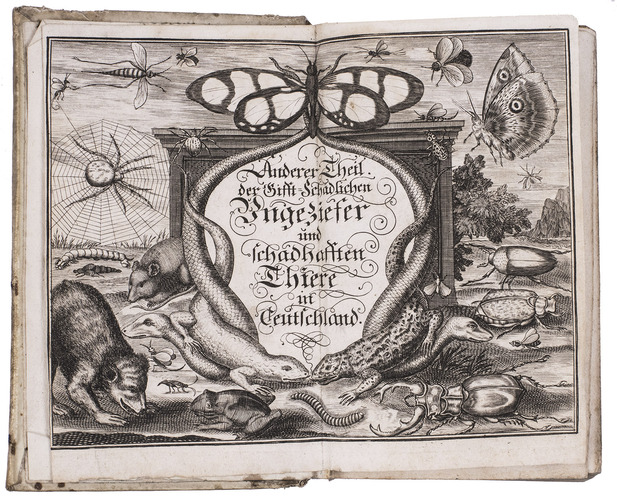 Anderer Theil.
der Gifft-Schädlichen
Vngeziefer
und
schadhafften
Thiere
in
Teutschland.